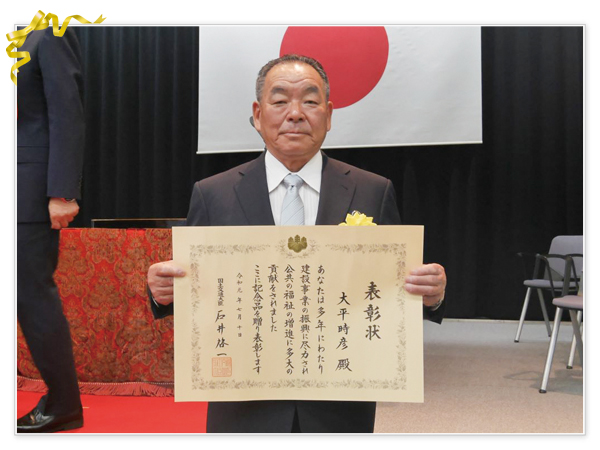 表彰状
大平時彦 殿
あなたは多年にわたり
建設事業の振興に尽力され
公共の福祉の増進に多大の
貢献をされました
ここに記念品を贈り表彰します
令和元年七月十日
国土交通大臣 石井啓一